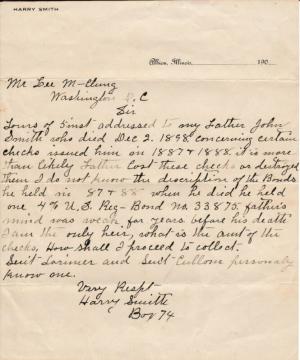 HARRY SMITH
Albion, Illinois, 190
Mr Lee McClung
Washington D.C
Sir
Yours of 5 inst addressed to my Father John
Smith who died Dec 2. 1898 concerning certain
checks issued him in 1887 & 1888 it is more
than likely Father Lost these checks or destroyed
them I do not know the description of the Bonds
he held in 87 & 88 when he died he held
one 4% U.S. Reg- Bond No. 33875 father's
mind was weak for years before his death
I am the only heir, what is the amt of the
checks, How shall I proceed to collect.
Sent Lorimer and Sent Cullom personaly
know one.
Very Respt
Harry Smith
Box 74